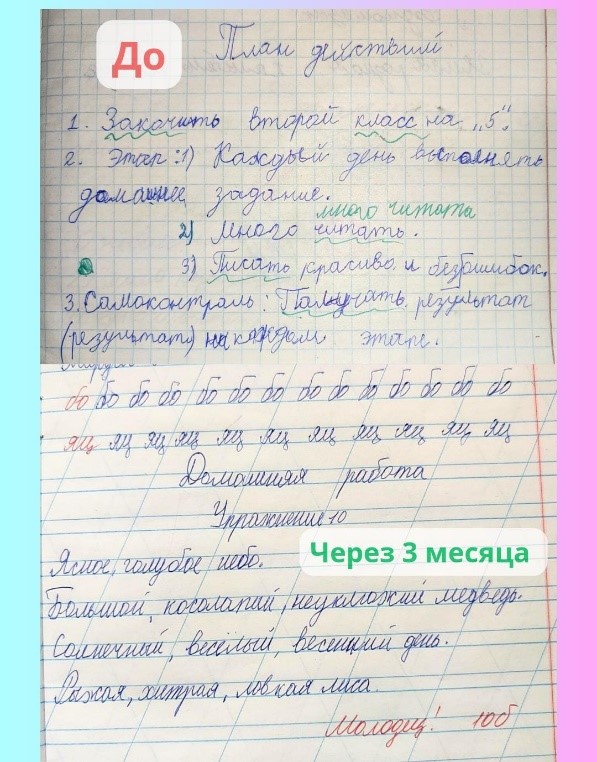 До
План действий
1. Закочить второй класс на „5".
2. Этап: 1) Каждый день выполнять
домашнее задание.
много читата
2) Много читать.
3) Писать красиво и без ошибок.
3. Самоконтроль: Палучать результат
(результат) на каждом этапе.
бо бо бо бо бо бо бо бо бо бо бо бо бо бо
яц яц яц яц яц яц яц яц яц яц яц
Домашняя работа
Упражнение 10
Через 3 месяца
Ясное, голубое небо.
Большой, косолапий, неуклюжий медведь.
Солнечный, весёлый, весенций день.
Рыжая, хитрая, ловкая лиса.
Молодец! 10б